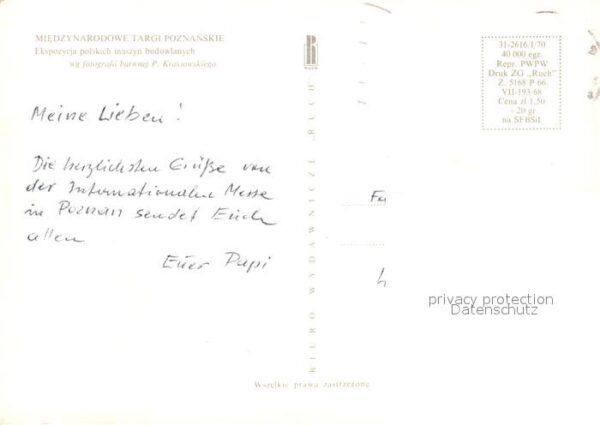 MIĘDZYNARODOWE TARGI POZNAŃSKIE
Ekspozycja polskich maszyn budowlanych
wg fotografii barwnej P. Krassowskiego
Meine Lieben!
Die herzlichsten Grüße von
der Internationalen Messe
in Poznań sendet Euch
allen
Euer Papi
BIURO WYDAWNICZE „RUCH"
31-2616/I/70
40 000 egz.
Repr. PWPW
Druk ZG „Ruch"
Z. 5168 P 66
VII-193-68
Cena zł 1,50
- 20 gr
na SFBSiI
privacy protection
Datenschutz
Wszelkie prawa zastrzeżone